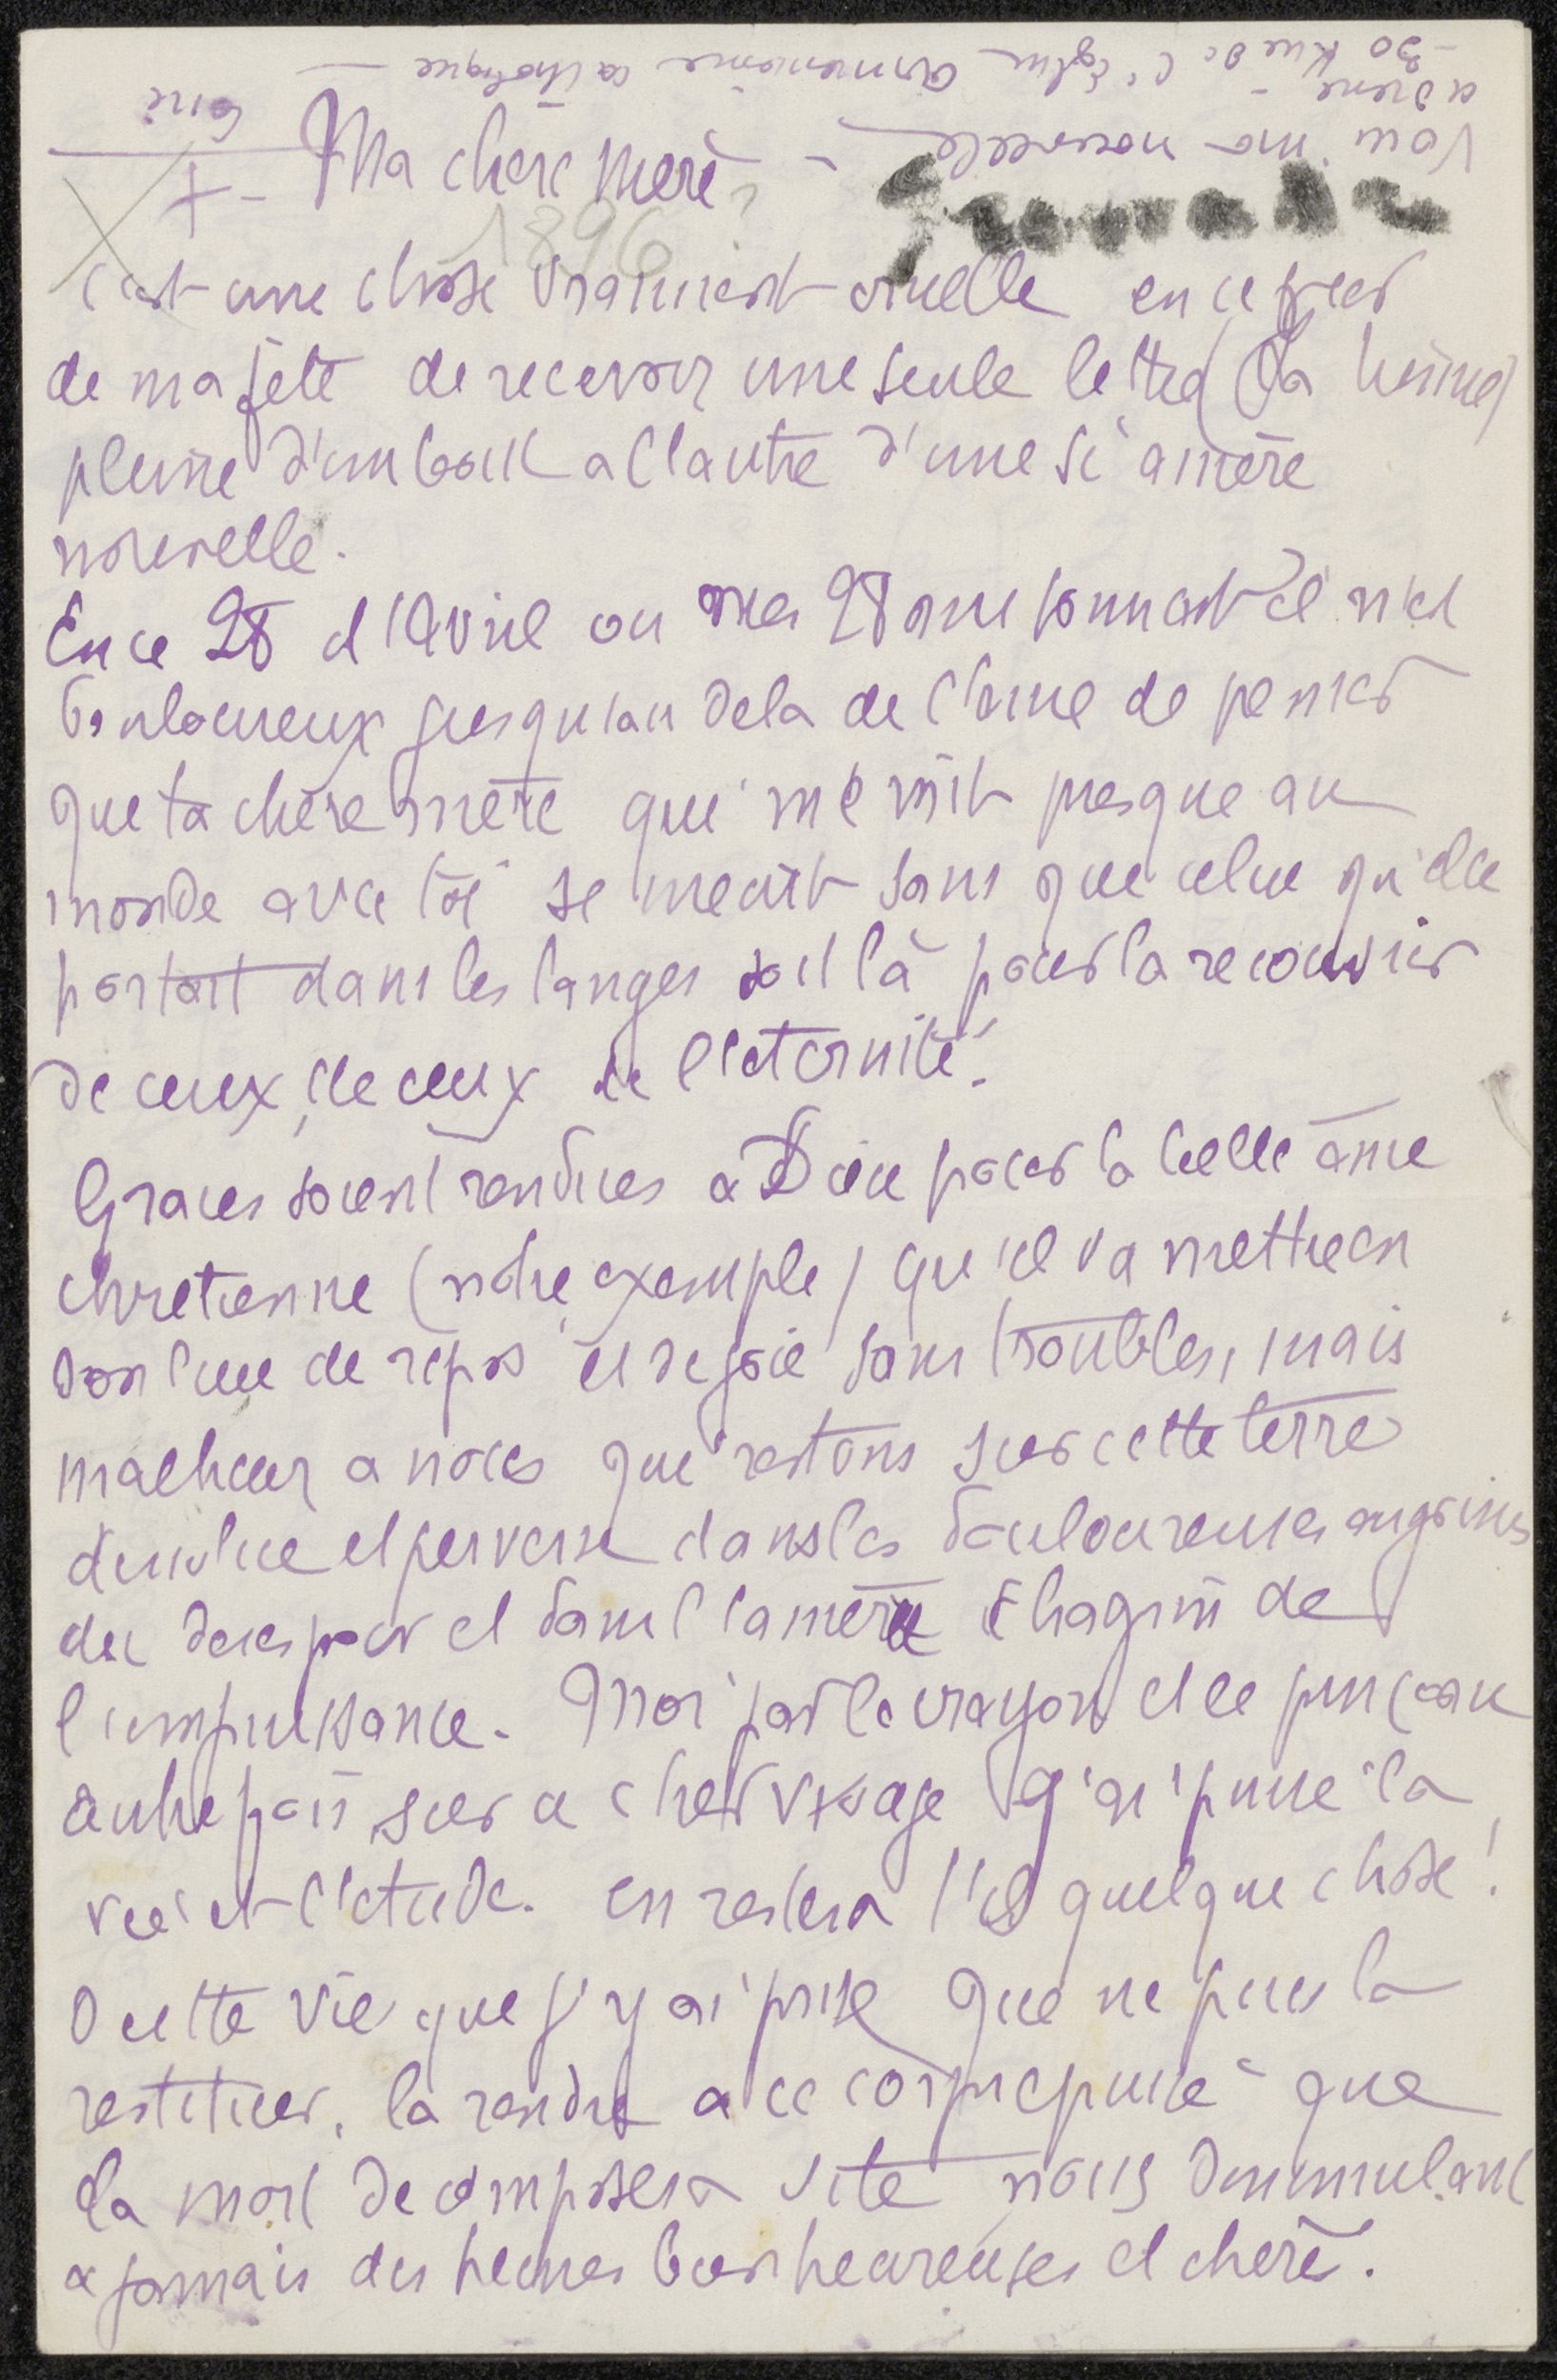 Voici ma nouvelle
adresse -
- 30 Rue de l'Eglise armenienne catholique -
Ma chère mere
1896?
c'est une chose vraiment cruelle en ce jour
de ma fète de recevoir une seule lettre (la tienne)
pleine d'un bout a l'autre d'une si amère
nouvelle.
En ce 28 d'Avril ou mes 28 ans sonnent il m'est
douloureux jusqu'au dela de l'ame de penser
que ta chère mère qui me mit presque au
monde avec toi se meurt sans que celui qu'elle
portait dans les langes soit là pour la recouvrir
de ceux, de ceux de l'eternité.
Graces soient rendues a Dieu pour la belle âme
chretienne (notre exemple) qu'il va mettre en
son lieu de repos et de joie sans troubles, mais
malheur a nous qui restons sur cette terre
et perverse dans les douloureuses
du desespoir et dans l'amère chagrin de
l'impuissance. Moi par le crayon et le pinceau
autrefois sur ce cher visage j'ai puisé la
vie et l'etude. en restera t'il quelque chose!
O cette vie que j'y ai prise que ne puis la
restituer, la rendre a ce corps epuisé que
la mort decomposera vite nous dissimulant
a jamais des heures bienheureuses et chère.